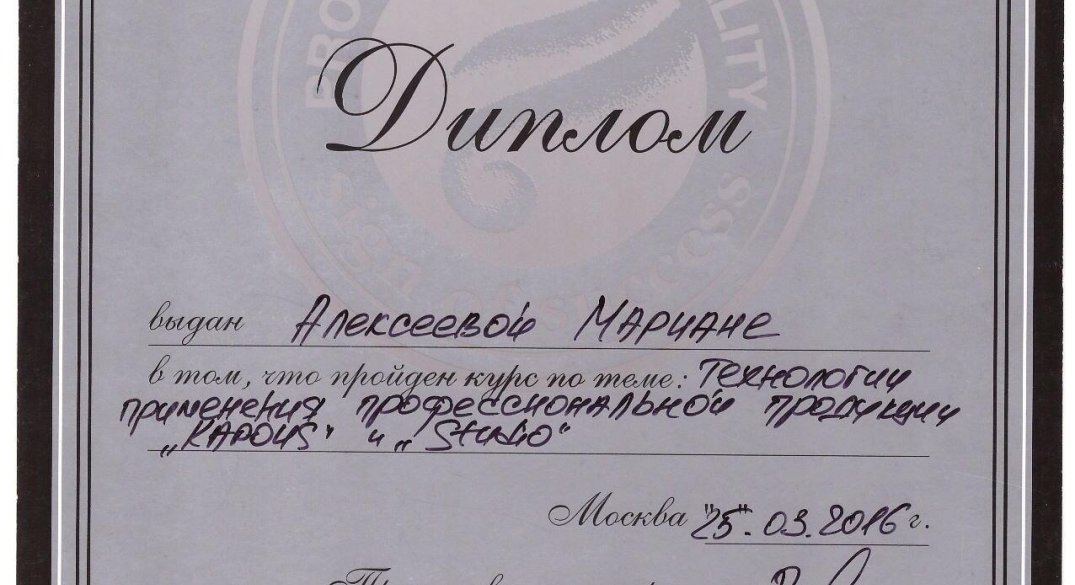 Диплом
sign of success
выдан Алексеевой Мариане
в том, что пройден курс по теме: Технологии
применения профессиональной продукции
„KAPOUS" и „Studio"
Москва "25".03.2016 г.